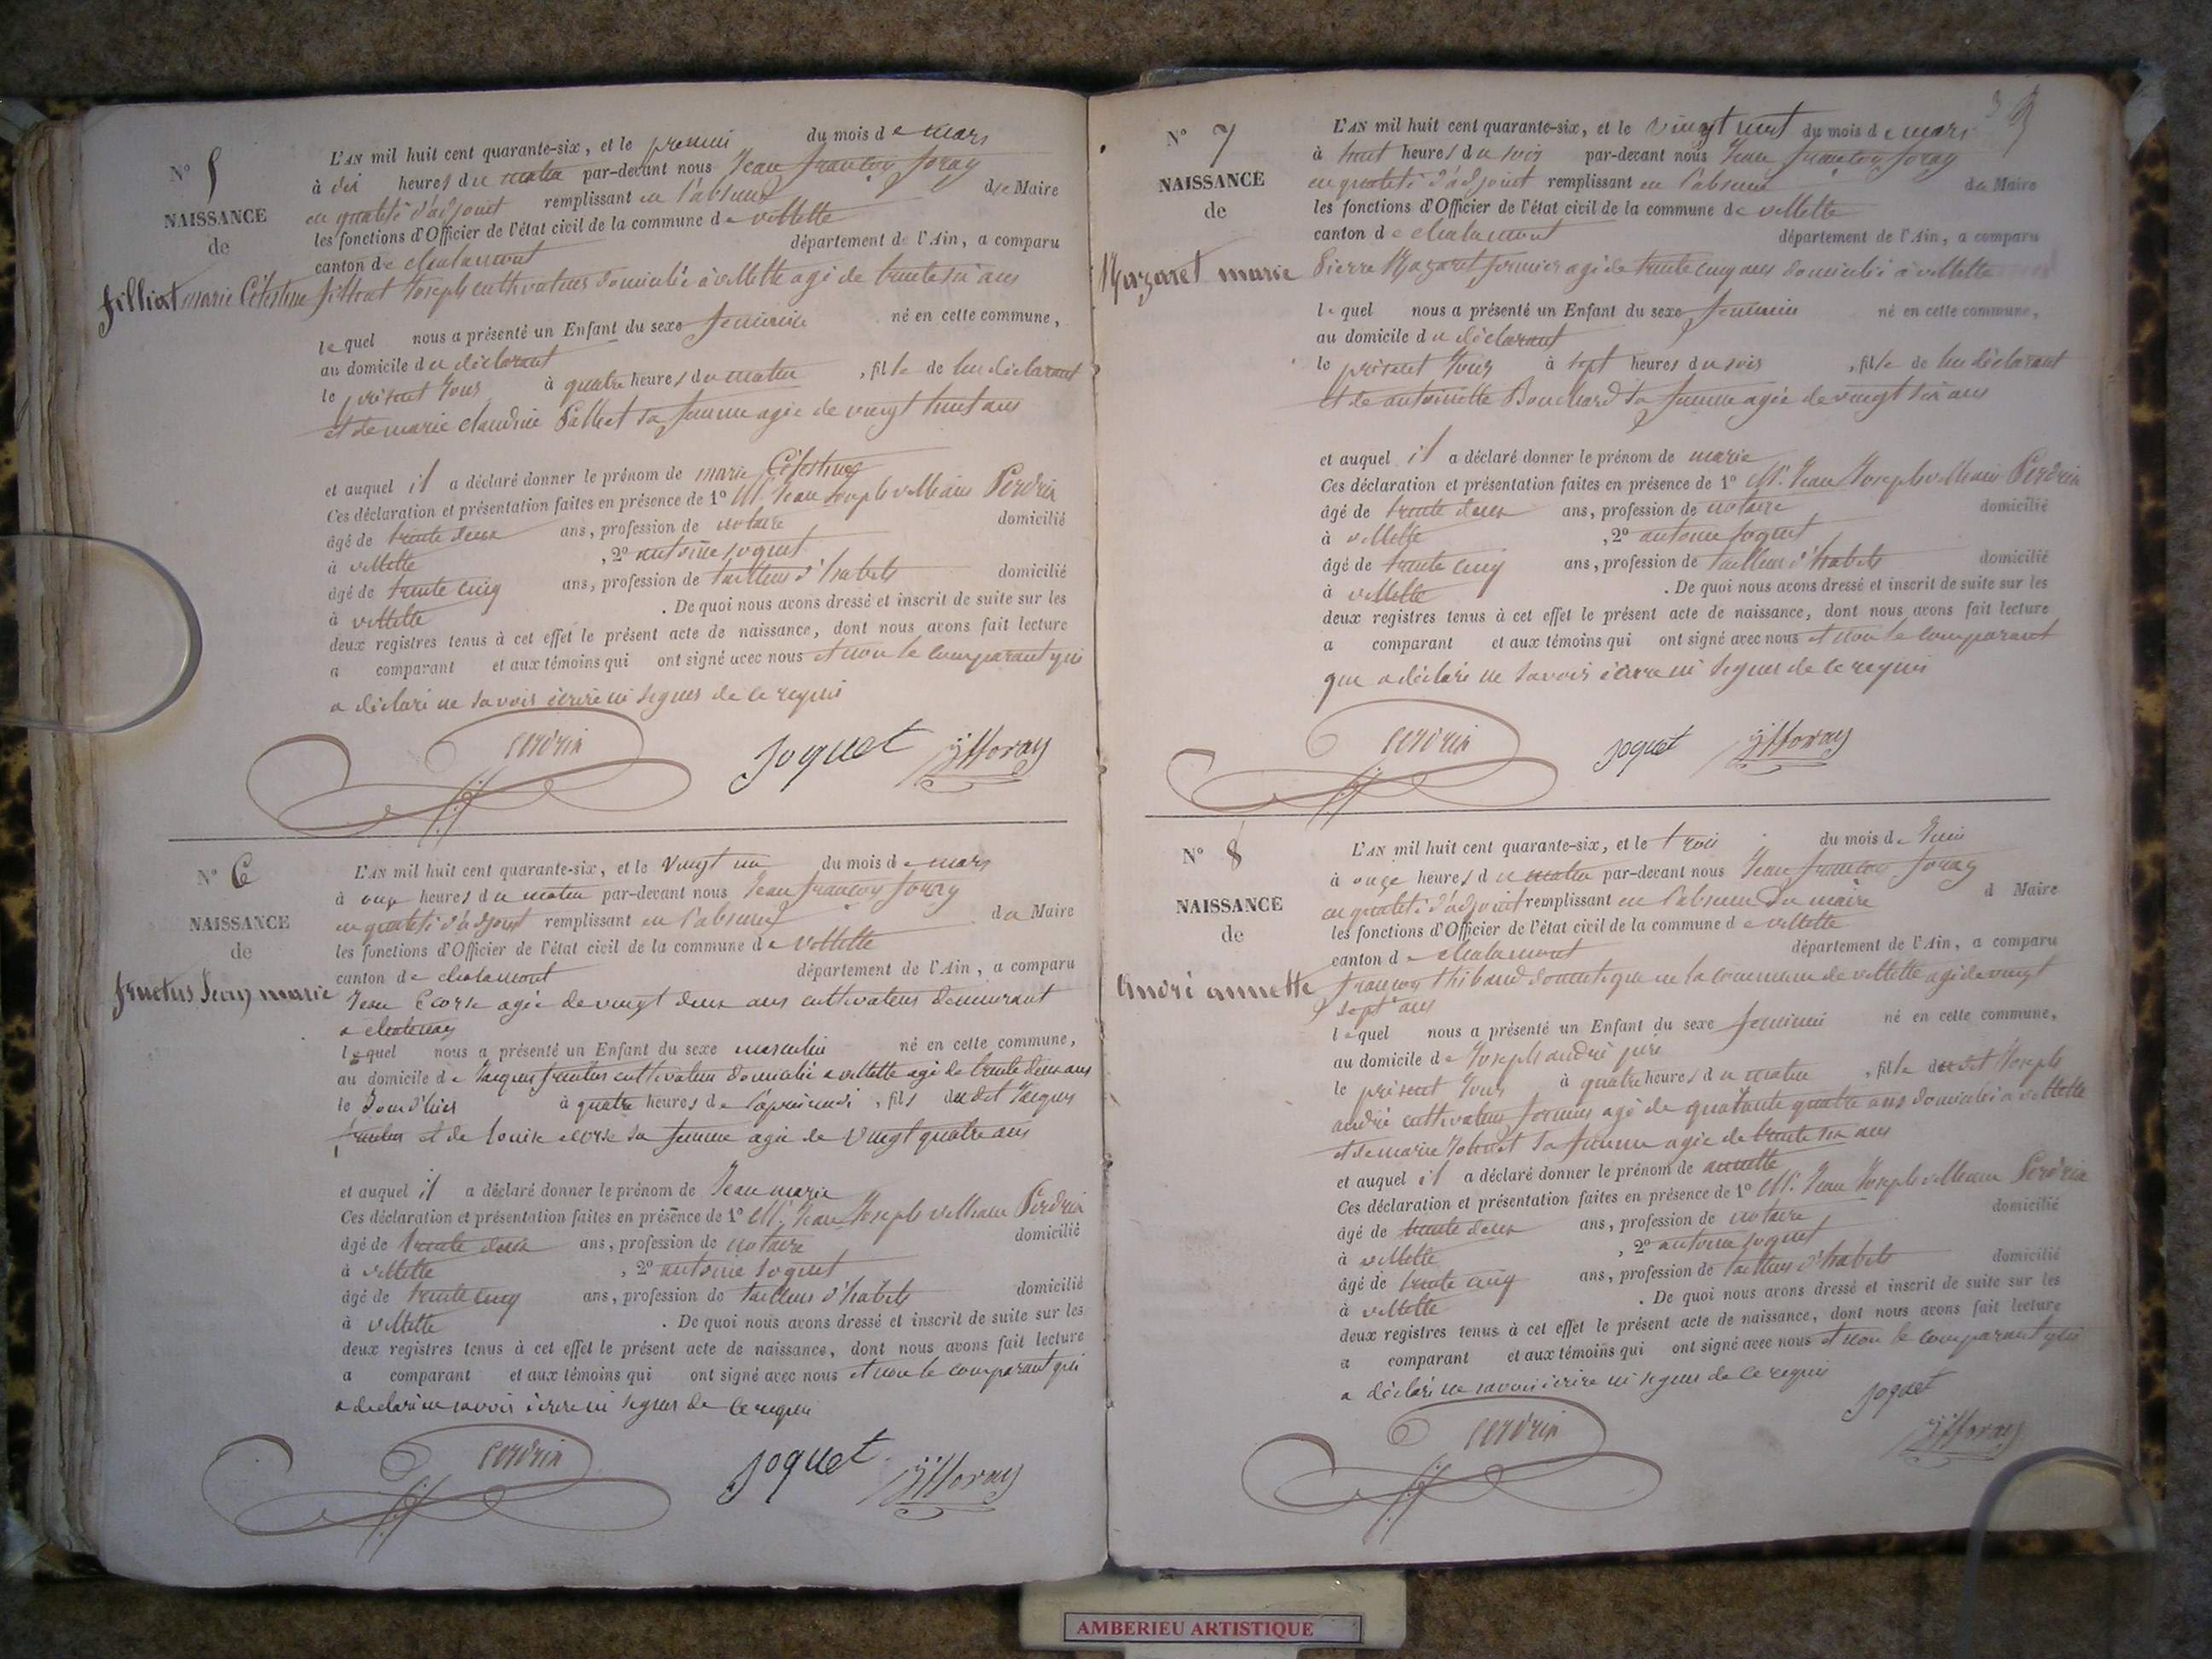 N° 5
NAISSANCE
de
filliat marie Célestine
L'AN mil huit cent quarante-six, et le premier du mois de mars
à dix heures du matin par-devant nous Jean françois foray
en qualité d'adjoint remplissant en l'absence de Maire
les fonctions d'Officier de l'état civil de la commune de villette
canton de chalamont département de l'Ain, a comparu
filliat Joseph cultivateur domicilié à villette agé de trente six ans
lequel nous a présenté un Enfant du sexe feminin né en cette commune,
au domicile du déclarant
le présent Jour à quatre heures du matin, fille de lui déclarant
et de marie claudine sa femme agée de vingt huit ans
et auquel il a déclaré donner le prénom de marie Célestine
Ces déclaration et présentation faites en présence de 1° Mr. Jean Joseph Perdrix
âgé de trente deux ans, profession de notaire domicilié
à villette, 2° antoine Joguet
âgé de trente cinq ans, profession de tailleur d'habits domicilié
à villette. De quoi nous avons dressé et inscrit de suite sur les
deux registres tenus à cet effet le présent acte de naissance, dont nous avons fait lecture
a comparant et aux témoins qui ont signé avec nous et non le comparant qui
a déclaré ne savoir écrire ni signer de ce requis
Perdrix Joguet jffforay
N° 6
NAISSANCE
de
fructus Jean marie
L'AN mil huit cent quarante-six, et le vingt un du mois de mars
à onze heures du matin par-devant nous Jean françois foray
en qualité d'adjoint remplissant en l'absence du Maire
les fonctions d'Officier de l'état civil de la commune de villette
canton de chalamont département de l'Ain, a comparu
Jean Ecorse agée de vingt deux ans cultivateur demeurant
a chatenay
lequel nous a présenté un Enfant du sexe masculin né en cette commune,
au domicile de Jacques fructus cultivateur domicilié a villette agé de trente deux ans
le Jour d'hier à quatre heures de l'après midi, fils du dit Jacques
fructus et de Louise ecorse sa femme agée de vingt quatre ans
et auquel il a déclaré donner le prénom de Jean marie
Ces déclaration et présentation faites en présence de 1° Mr. Jean Joseph Perdrix
âgé de trente deux ans, profession de notaire domicilié
à villette, 2° antoine Joguet
âgé de trente cinq ans, profession de tailleur d'habits domicilié
à villette. De quoi nous avons dressé et inscrit de suite sur les
deux registres tenus à cet effet le présent acte de naissance, dont nous avons fait lecture
a comparant et aux témoins qui ont signé avec nous et non le comparant qui
a déclaré ne savoir écrire ni signer de ce requis
Perdrix Joguet jffforay
N° 7
NAISSANCE
de
Mazaret marie
L'AN mil huit cent quarante-six, et le vingt huit du mois de mars
à huit heures du soir par-devant nous Jean françois foray
en qualité d'adjoint remplissant en l'absence du Maire
les fonctions d'Officier de l'état civil de la commune de villette
canton de chalamont département de l'Ain, a comparu
Pierre Mazaret fermier agé de trente cinq ans domicilié à villette
lequel nous a présenté un Enfant du sexe feminin né en cette commune,
au domicile du déclarant
le présent Jour à sept heures du soir, fille de lui déclarant
et de antoinette Bouchard sa femme agée de vingt six ans
et auquel il a déclaré donner le prénom de marie
Ces déclaration et présentation faites en présence de 1° Mr. Jean Joseph Perdrix
âgé de trente deux ans, profession de notaire domicilié
à villette, 2° antoine Joguet
âgé de trente cinq ans, profession de tailleur d'habits domicilié
à villette. De quoi nous avons dressé et inscrit de suite sur les
deux registres tenus à cet effet le présent acte de naissance, dont nous avons fait lecture
a comparant et aux témoins qui ont signé avec nous et non le comparant
que a déclaré ne savoir écrire ni signer de ce requis
Perdrix Joguet jffforay
N° 8
NAISSANCE
de
André annette
L'AN mil huit cent quarante-six, et le trois du mois de Juin
à onze heures du matin par-devant nous Jean françois foray
en qualité d'adjoint remplissant en l'absence du maire d Maire
les fonctions d'Officier de l'état civil de la commune de villette
canton de chalamont département de l'Ain, a comparu
françois thibaud domestique en la commune de villette agé de vingt
sept ans
lequel nous a présenté un Enfant du sexe feminin né en cette commune,
au domicile de Joseph andré père
le présent Jour à quatre heures du matin, fille du dit Joseph
andré cultivateur fermier agé de quarante quatre ans domicilié à villette
et de marie sa femme agée de trente six ans
et auquel il a déclaré donner le prénom de annette
Ces déclaration et présentation faites en présence de 1° Mr. Jean Joseph Perdrix
âgé de trente deux ans, profession de notaire domicilié
à villette, 2° antoine Joguet
âgé de trente cinq ans, profession de tailleur d'habits domicilié
à villette. De quoi nous avons dressé et inscrit de suite sur les
deux registres tenus à cet effet le présent acte de naissance, dont nous avons fait lecture
a comparant et aux témoins qui ont signé avec nous et non le comparant qui
a déclaré ne savoir écrire ni signer de ce requis
Perdrix Joguet jffforay
AMBERIEU ARTISTIQUE